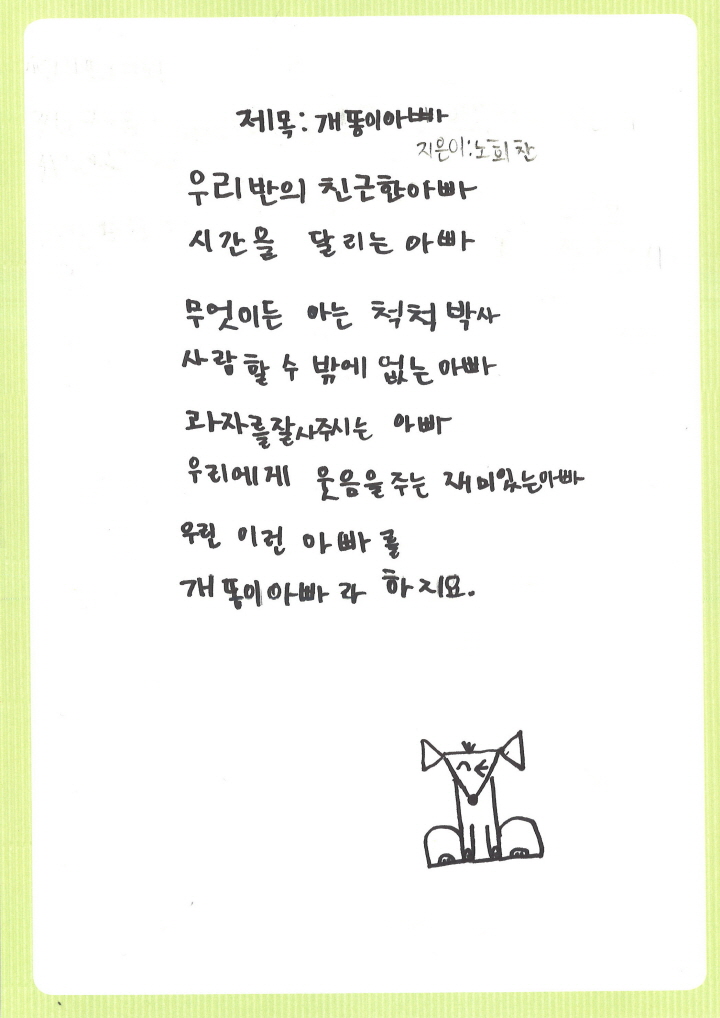 제목: 개똥이아빠
지은이: 노희찬
우리반의 친근한아빠
시간을 달리는 아빠
무엇이든 아는 척척 박사
사랑할 수 밖에 없는 아빠
과자를잘사주시는 아빠
우리에게 웃음을 주는 재미있는아빠
우린 이런 아빠를
개똥이아빠라 하지요.